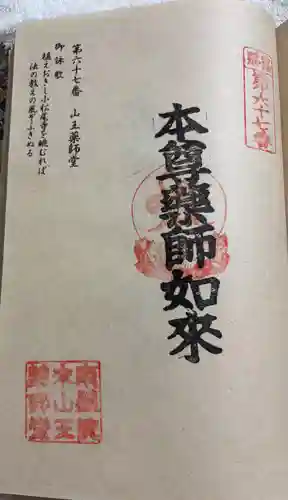 第六十七番
本尊薬師如來
第六十七番　山王薬師堂
御詠歌
植えおきし小松尾寺を眺むれば
法の教えの風ぞふきぬる